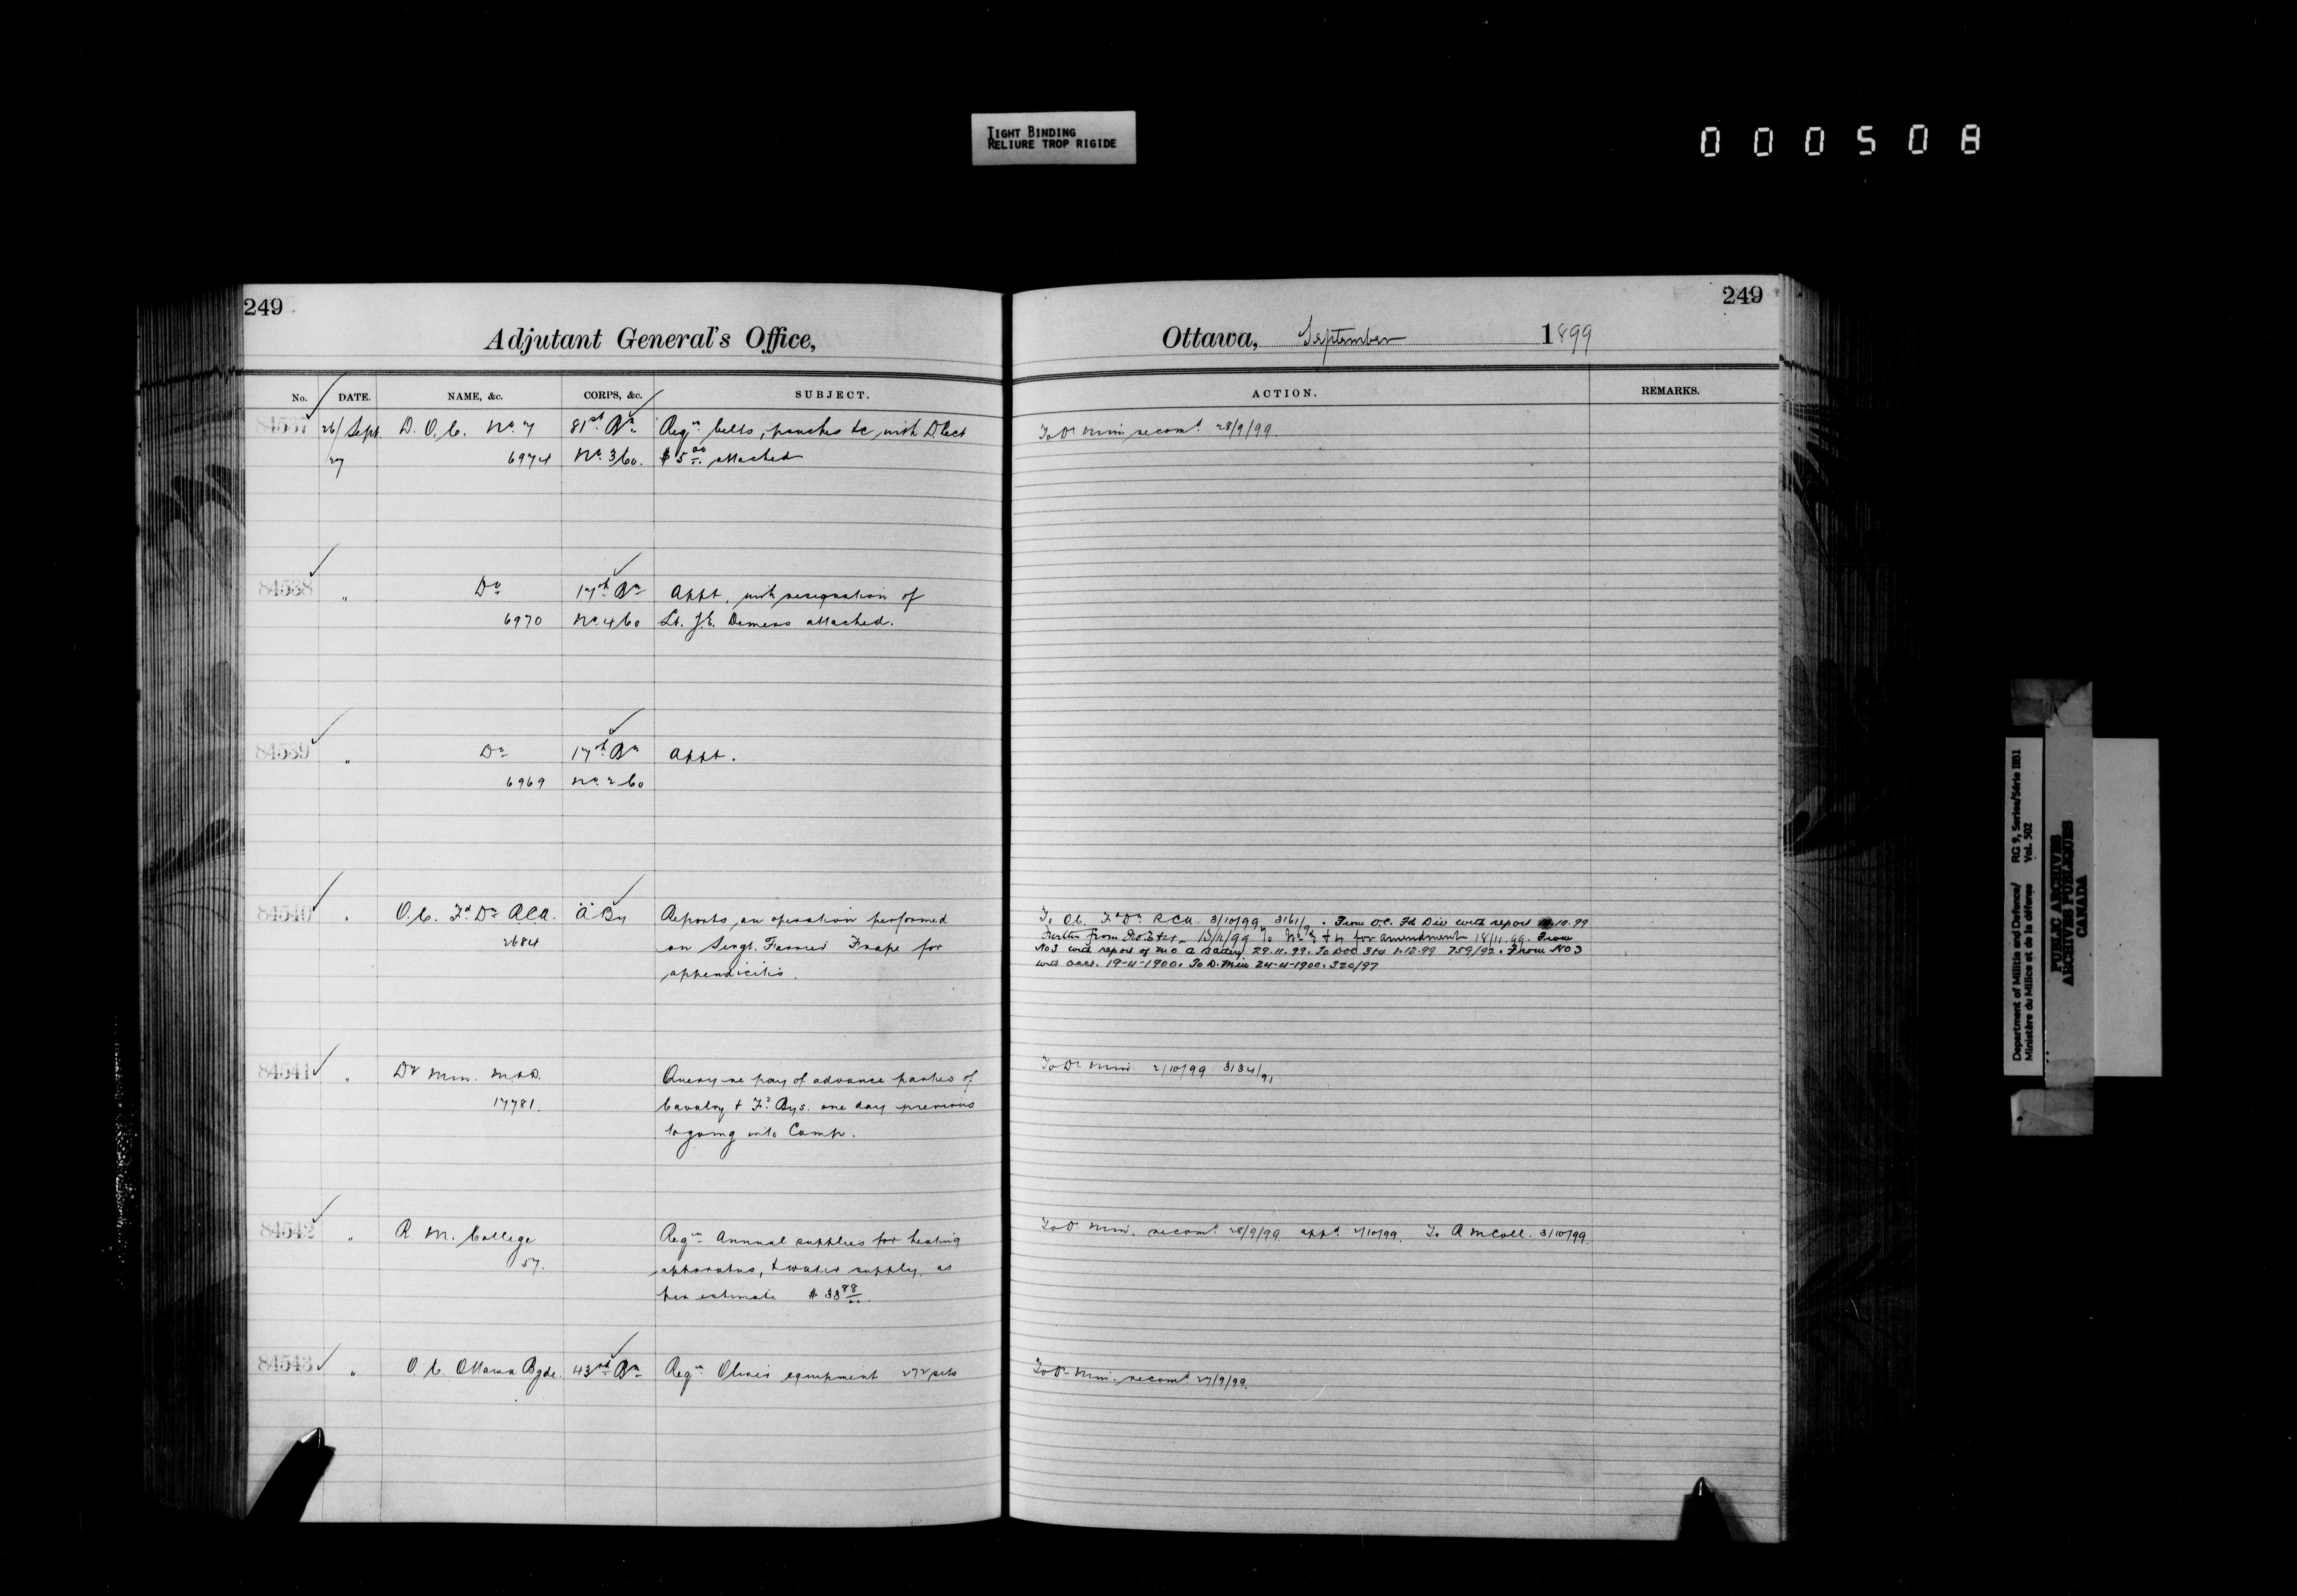 TIGHT BINDING
RELIURE TROP RIGIDE
000508
249
Adjutant General's Office,
No. DATE. NAME, &c. CORPS, &c. SUBJECT.
84537 26/ Sept. D. O. C. No. 7 81st Bn Reqn belts, pouches &c, with D. Rect
27 6974 No. 3 Co. $5.00 attached
84538 " Do 17th Bn Appt, with resignation of
6970 No. 4 Co Lt. J.E. Demers attached.
84539 " Do 17th Bn Appt.
6969 No. 2 Co
84540 " O.C. Fd Dn RCA. "A" By Reports an operation performed
2684 on Sergt. Farrier Frape for
appendicitis.
84541 " Dy Min. M&D. Query re pay of advance parties of
17781. Cavalry & Fd Bys. one day previous
to going into Camp.
84542 " R. M. College Reqn Annual supplies for heating
57. apparatus, & water supply, as
per estimate $ 3388
84543 " O. C. Ottawa Bgde. 43rd Bn Reqn Oliver equipment 272 sets
249
Ottawa, September 1899
ACTION. REMARKS.
To Dy Min recomd 28/9/99.
To O.C. Fd Dn RCA 3/10/99 3161/ . From O.C. Fd Div with report 10.99
Further from 13/11/99 To for amendment 18/11.99. From
No 3 with report of M.O A Battery 29.11.99. To DOC 3rd 1.12.99 759/92. From No 3
with acct. 19-4-1900. To D. Min 24-4-1900. 320/97
To Dy Min 2/10/99 3134/91
To Dy Min. recomd 28/9/99. appd 2/10/99. To R M Coll. 3/10/99.
To Dy Min. recomd 27/9/99.
Department of Militia and Defence/ RG 9, Series/Série IIB1
Ministère du Milice et de la défense Vol. 502
PUBLIC ARCHIVES
ARCHIVES PUBLIQUES
CANADA